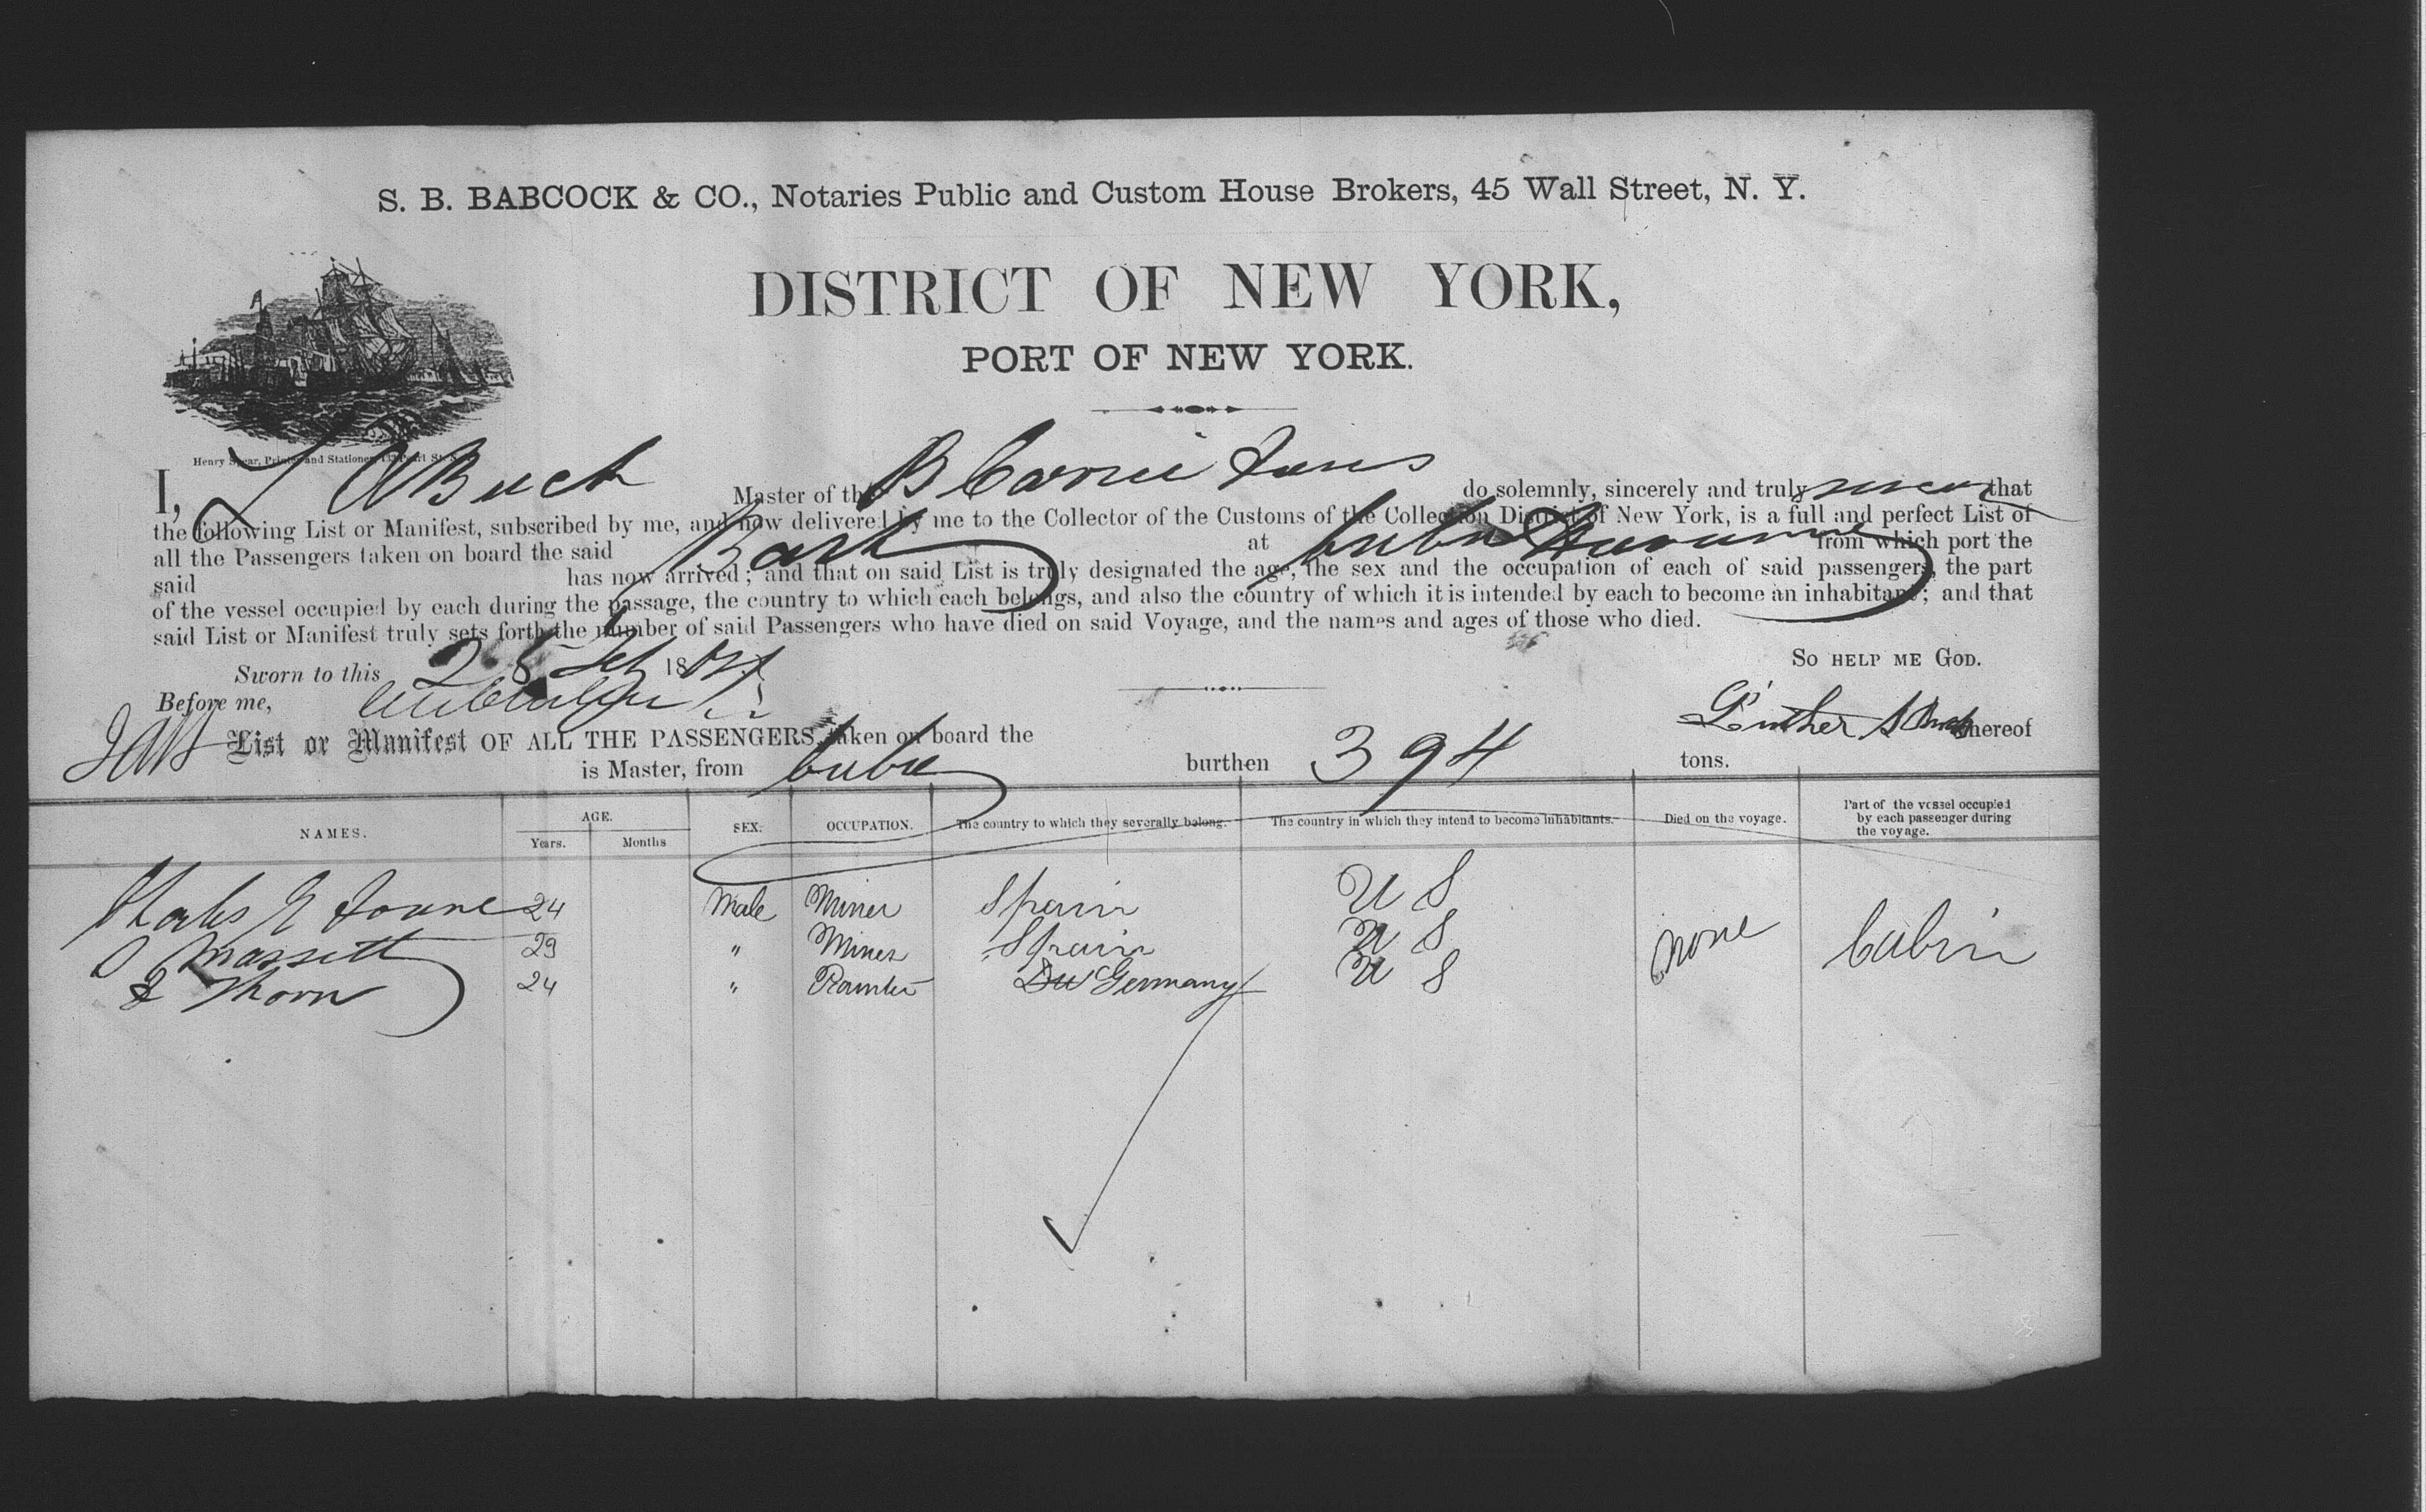 S. B. BABCOCK & CO., Notaries Public and Custom House Brokers, 45 Wall Street, N. Y.
DISTRICT OF NEW YORK,
PORT OF NEW YORK.
Henry Spear, Printer and Stationer, Pearl St.
I, L A Buck Master of the B Carrie do solemnly, sincerely and truly swear that
the following List or Manifest, subscribed by me, and now delivered by me to the Collector of the Customs of the Collection District of New York, is a full and perfect List of
all the Passengers taken on board the said Bark at Cuba from which port the
said has now arrived; and that on said List is truly designated the age, the sex and the occupation of each of said passengers, the part
of the vessel occupied by each during the passage, the country to which each belongs, and also the country of which it is intended by each to become an inhabitant; and that
said List or Manifest truly sets forth the number of said Passengers who have died on said Voyage, and the names and ages of those who died.
So help me God.
Sworn to this 25 Feb 18
Before me,
Luther A Buck
List or Manifest OF ALL THE PASSENGERS taken on board the whereof
is Master, from Cuba burthen 394 tons.
NAMES. AGE. Years. Months SEX. OCCUPATION. The country to which they severally belong. The country in which they intend to become inhabitants. Died on the voyage. Part of the vessel occupied by each passenger during the voyage.
Charles 24 Male Miner Spain U S
Massett 29 " Miner Spain U S none Cabin
Thorn 24 " Painter Germany U S